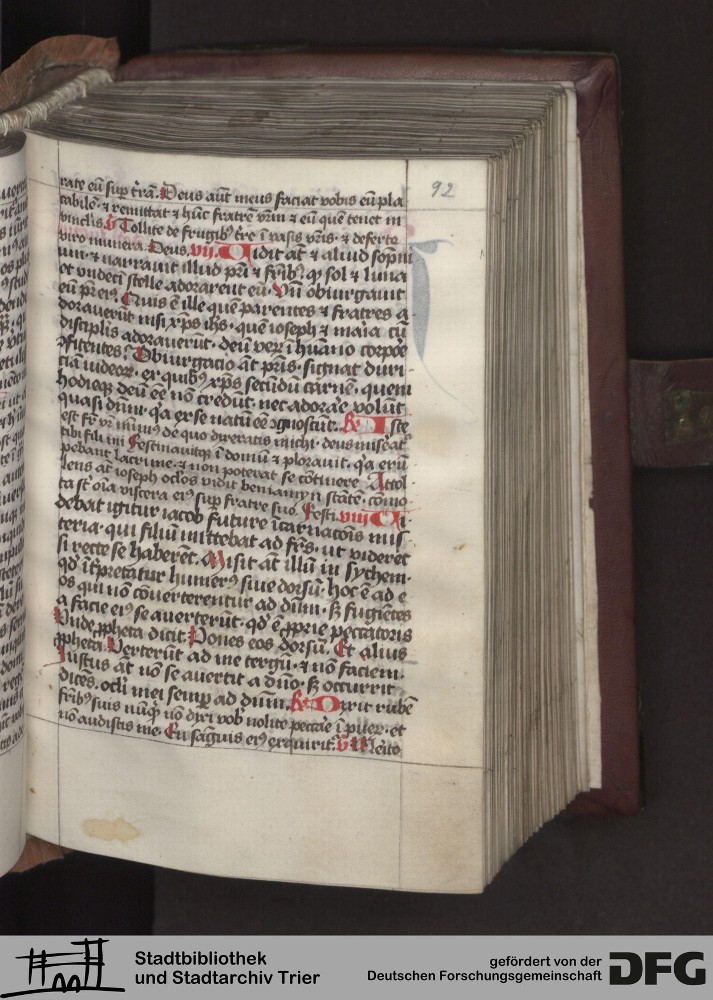 92
rate eū sup t̄rā. Deus aūt meus faciat vobis eū pla
cabilē · ⁊ remittat ⁊ hūc fratrē vr̄m ⁊ eū quē tenet in
vinclis. V̄ Tollite de frugibꝰ t̄re ī vasis vr̄is · ⁊ deferte
viro munera. Deus. vij. Vidit at̄ ⁊ aliud sōpni
um · ⁊ narravit illud pr̄i ⁊ fr̄ibꝰ · ꝙ sol ⁊ luna
et vndeci stelle adorarent eū · Vn̄ obiurgauit
eū pr̄ eiꝰ. Quis ē ille quē parentes ⁊ fratres a
dorauerūt nisi xp̄s ih̄s · quē ioseph ⁊ maria cū
disciplis adorauerūt · deū verū ī hūano corpore
ꝯfitentes. Obiurgacio at̄ pr̄is · signat duri-
ciā iudeorꝝ · ex quibꝰ xp̄s secūdū carnē · quem
hodieqꝫ deū eē nō credūt · nec adorare volūt
quasi dn̄m · q̇a ex se natū eē ꝯgnoscūt. R̄ Iste
est fr̄ vr̄ minꝰ de quo dixeratis michi · deus miseat̄
tibi fili mi Festinauitqꝫ ī domū ⁊ plorauit · q̇a erū
pebant lacrime · ⁊ non poterat se cōtinere. Attol
lens at̄ ioseph oclos vidit beniamyn stātē · cōmo
ta st̄ oīa viscera eiꝰ sup fratre suo. Festi. viij Vi
debat igitur iacob future īcarnacōis mis
teria · qui filiū mittebat ad fr̄s · ut videret
si recte se haberēt. Misit at̄ illū in sychem ·
qd̄ īt̄pretatur humerꝰ siue dorsū · hoc ē ad e
os qui nō cōuerterentur ad dn̄m · sꝫ fugiētes
a facie eiꝰ se auerterūt · qd̄ ē ꝓprie peccatoris
Vnde ꝓpheta dicit. Pones eos dorsū. Et alius
ꝓpheta. Verterūt ad me tergū · ⁊ nō faciem ·
Iustus at̄ nō se auertit a dn̄o · sꝫ occurrit
dicēs. oc̄li mei semꝑ ad dn̄m. R̄ Dixit rubē
fr̄ibꝰ suis nūqͥd nō dixi vob̄ nolite peccare ī puerū · et
nō audistis me. En sāguis eiꝰ exquirit̄. V̄ Merito
Stadtbibliothek
und Stadtarchiv Trier
gefördert von der
Deutschen Forschungsgemeinschaft
DFG